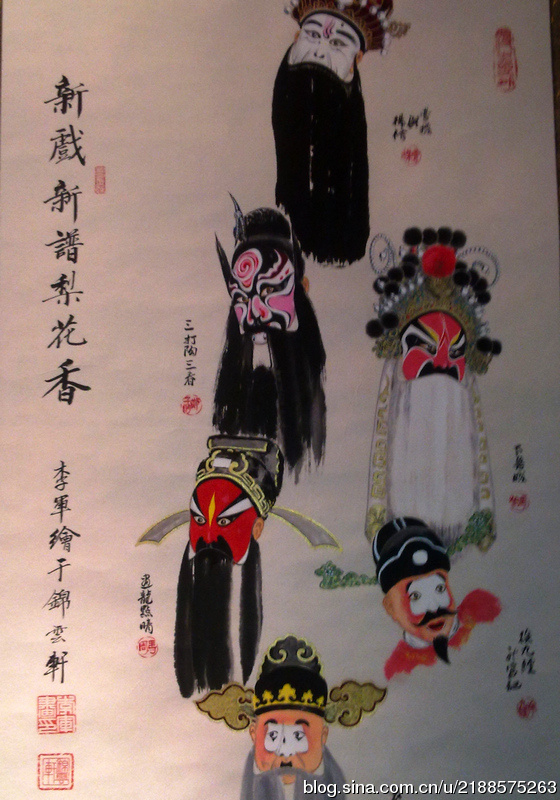 新戲新譜梨花香
李軍繪于錦雲軒
三打陶三春
画龍點睛
徐九經
blog.sina.com.cn/u/2188575263